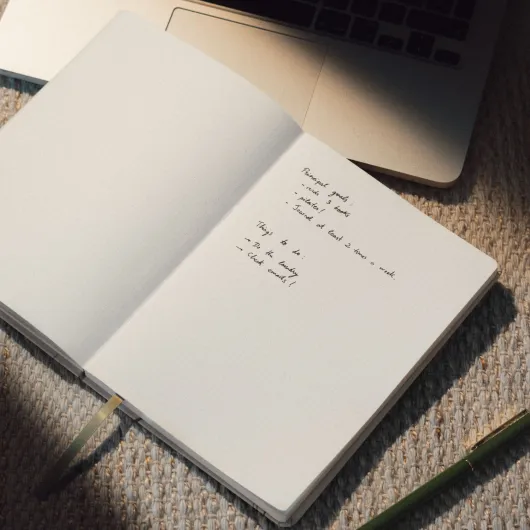 Personal goals:
- read 3 books
- pilates!
- Journal at least 2 times a week.
Things to do:
→ Do the laundry
→ Check emails!